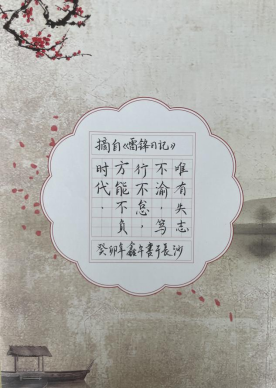 摘自《雷锋日记》
唯有矢志
不渝，笃
行不怠，
方能不负
时代。
癸卯年鑫午書于長沙